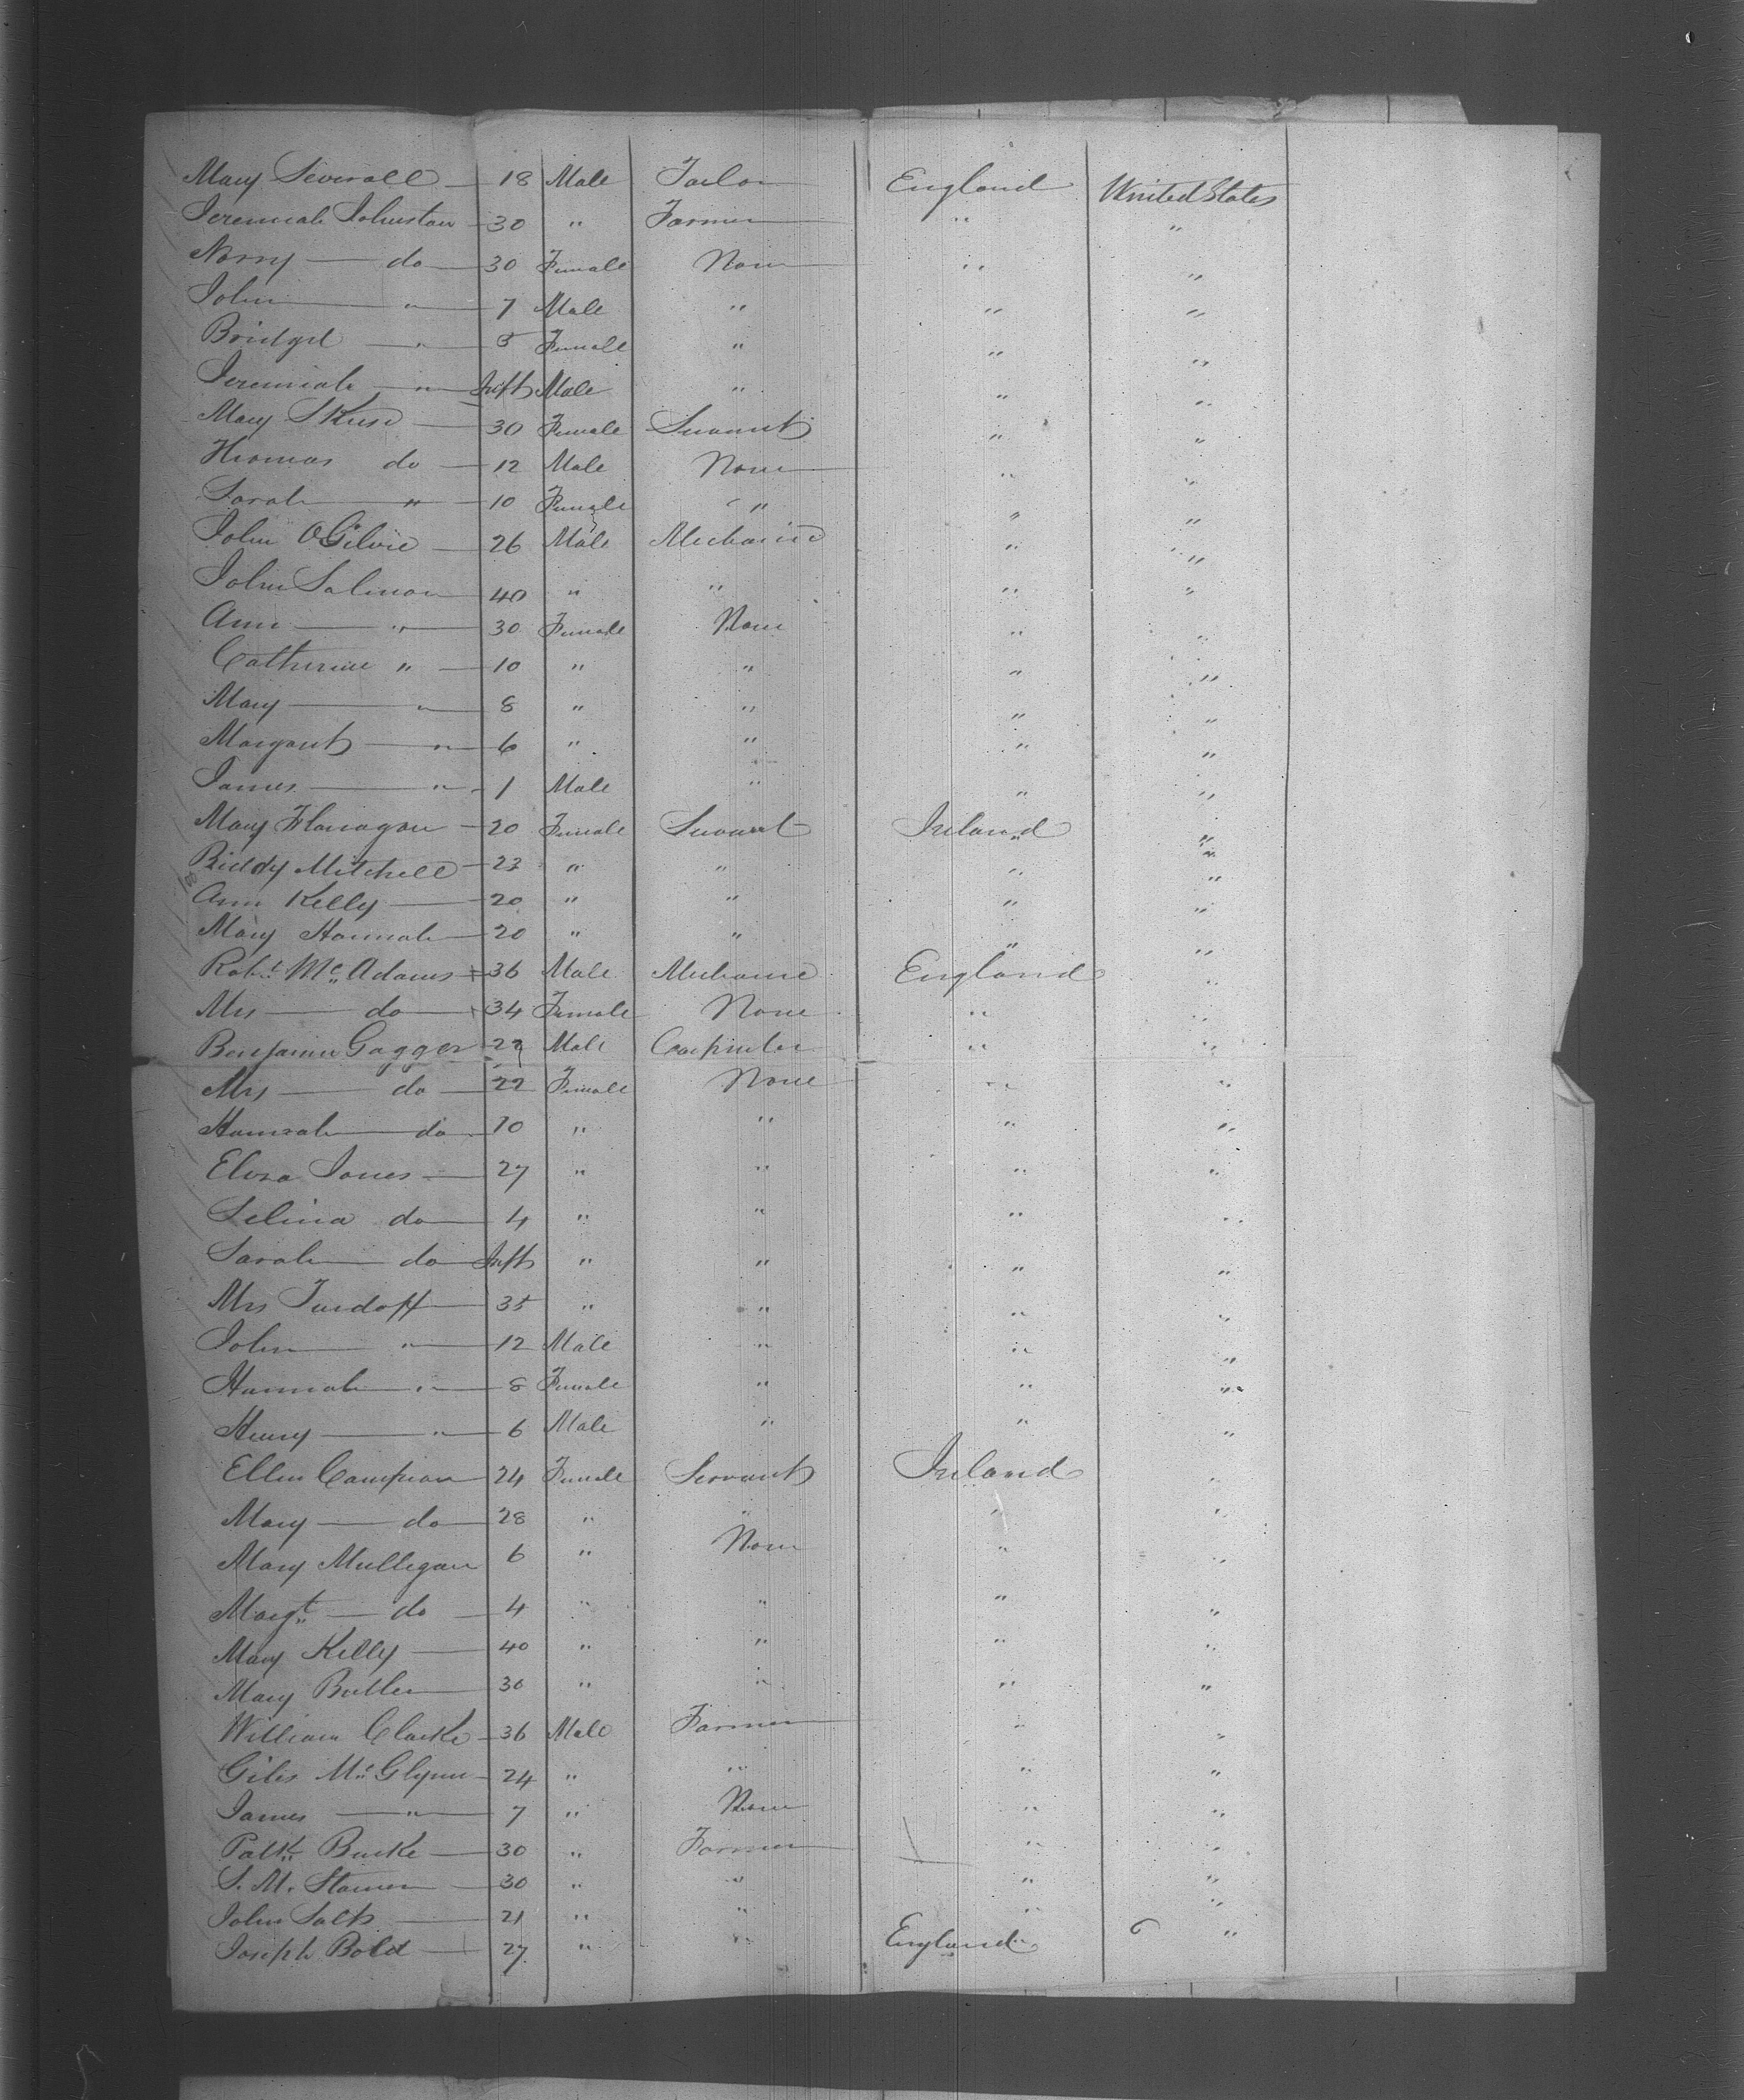 Mary Severall 18 Male Tailor England United States
Jeremiah Johnston 30 " Farmer " "
Norry do 30 Female None " "
John " 7 Male " " "
Bridget " 5 Female " " "
Jeremiah " Inft Male " " "
Mary Skuse 30 Female Servant " "
Thomas do 12 Male None " "
Sarah " 10 Female " " "
John OGilvie 26 Male Mechanic " "
John Salmon 40 " " " "
Ann " 30 Female None " "
Catherine " 10 " " " "
Mary " 8 " " " "
Margaret " 6 " " " "
James " 1 Male " " "
Mary Flanagan 20 Female Servant Ireland "
Biddy Mitchell 23 " " " "
Ann Kelly 20 " " " "
Mary Hannah 20 " " " "
Robt. Mc Adams 36 Male Mechanic England "
Mrs do 34 Female None " "
Benjamin Gagger Male Carpenter " "
Mrs do 22 Female None " "
Hannah do 10 " " " "
Eliza Jones 27 " " " "
Selina do 4 " " " "
Sarah do Inft " " " "
Mrs 35 " " " "
John " 12 Male " " "
Hannah " 8 Female " " "
Henry " 6 Male " " "
Ellen Campion 24 Female Servant Ireland "
Mary do 28 " " " "
Mary Mulligan 6 " None " "
Margt do 4 " " " "
Mary Kelly 40 " " " "
Mary Butler 30 " " " "
William Clarke 36 Male Farmer " "
Giles Mc Glynn 24 " " " "
James " 7 " None " "
Patk Burke 30 " Farmer " "
S. M. 30 " " " "
John Salts 21 " " " "
Joseph Bold 27 " " England "